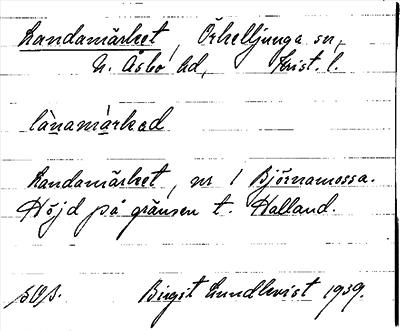 Landamärket, Örkelljunga sn,
N. Åsbo hd, Krist. l.
lànamàrkad
Landamärket, nr 1 Björnamossa.
Höjd på gränsen t. Halland.
Birgit Lundkvist 1939.